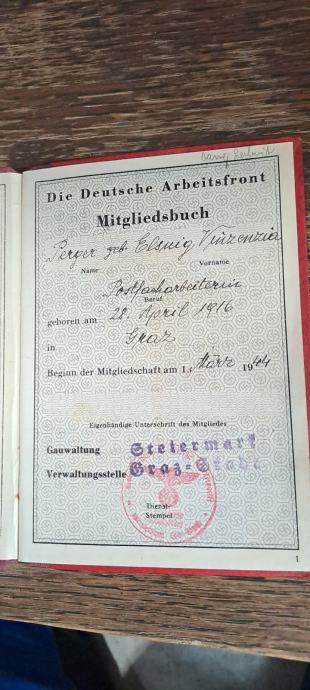 Die Deutsche Arbeitsfront
Mitgliedsbuch
Perger geb. Elsnig Vinzenzia
Name Vorname
Postfacharbeiterin
Beruf
geboren am 28. April 1916
in Graz
Beginn der Mitgliedschaft am 1. März 1944
Eigenhändige Unterschrift des Mitgliedes
Gauwaltung Steiermark
Verwaltungsstelle Graz-Stadt
Dienst-
Stempel
1